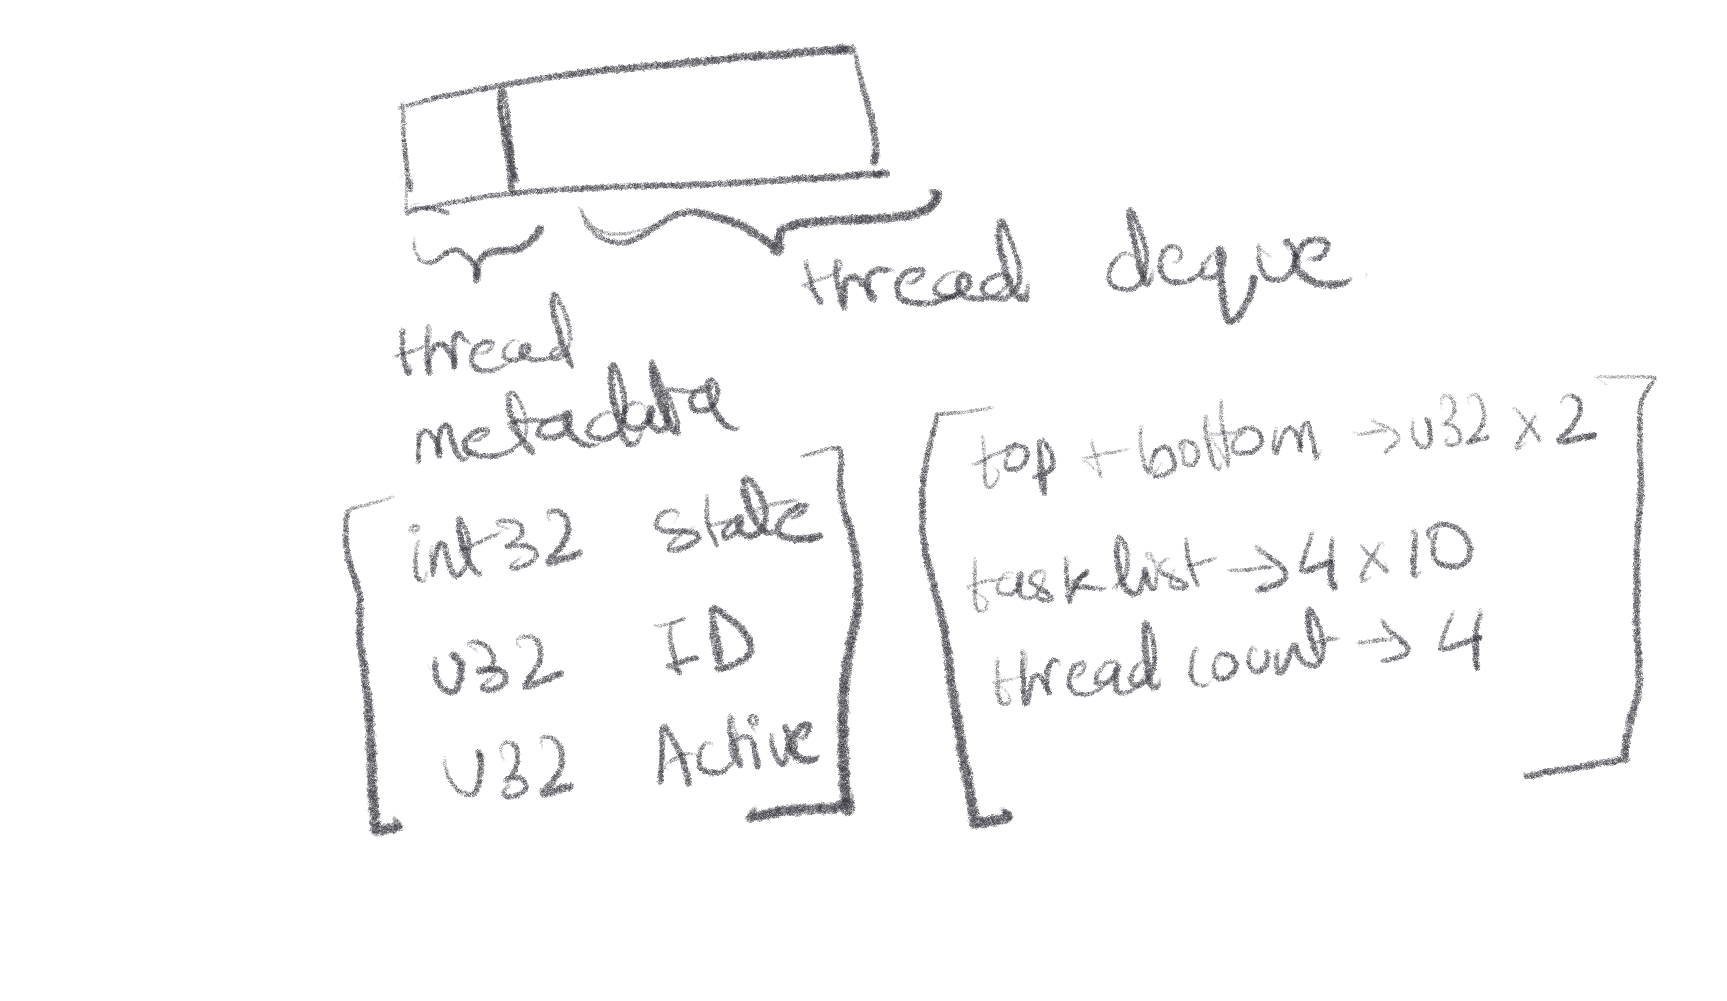 thread deque
thread
metadata
int32 state
u32 ID
u32 Active
top + bottom → u32 x 2
task list → 4 x 10
thread count → 4